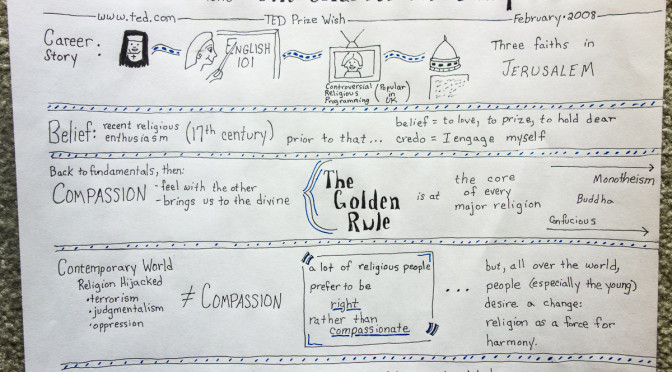 www.ted.com TED Prize Wish February • 2008
Career Story:
ENGLISH 101
Controversial Religious Programming (Popular in UK)
Three faiths in
JERUSALEM
Belief: recent religious enthusiasm (17th century) prior to that...
belief = to love, to prize, to hold dear
credo = I engage myself
Back to fundamentals, then:
COMPASSION
- feel with the other
- brings us to the divine
The
Golden
Rule
is at
the core
of every
major religion
Monotheism
Buddha
Confucious
Contemporary World
Religion Hijacked
• terrorism
• judgmentalism
• oppression
≠ COMPASSION
"a lot of religious people
prefer to be
right
rather than
compassionate"
...
but, all over the world,
people (especially the young)
desire a change:
religion as a force for
harmony.